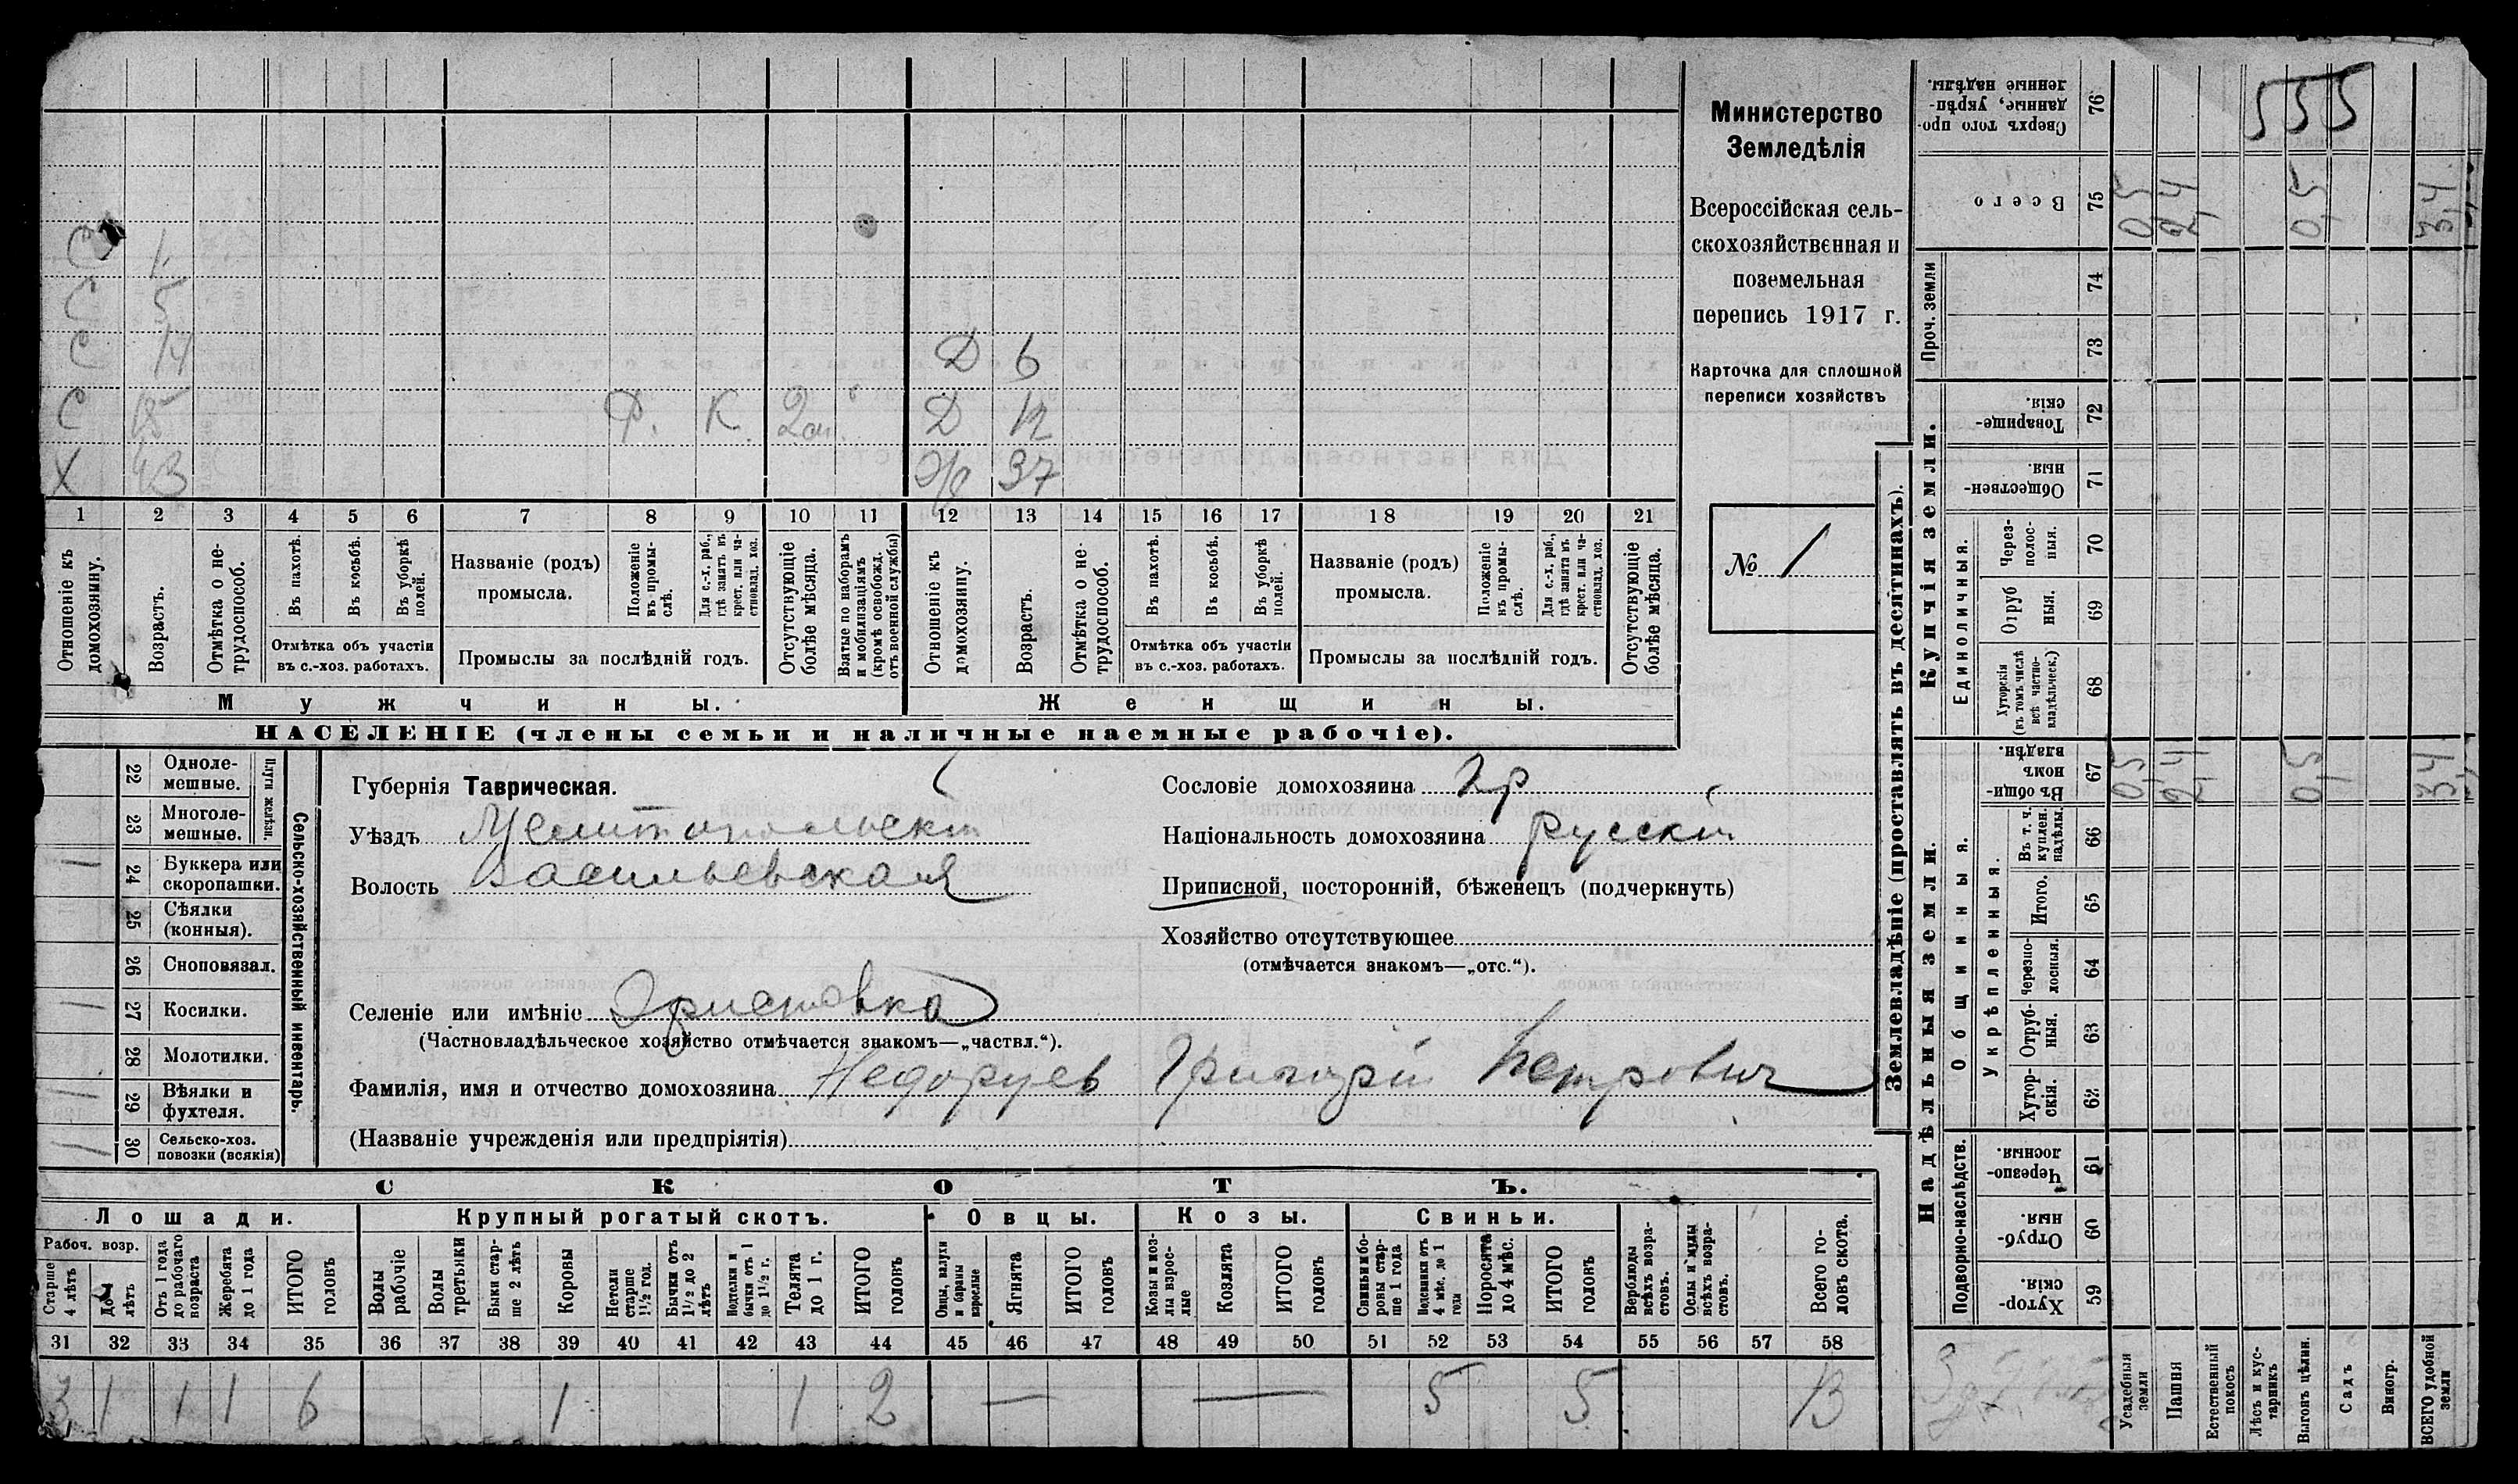 Министерство
Земледѣлія
Всероссійская сель-
скохозяйственная и
поземельная
перепись 1917 г.
Карточка для сплошной
переписи хозяйствъ
№ 1
555
С 1
С 5
С 14 Д 6
С 18 Ф. К. Д 12
Х 43 37
1 2 3 4 5 6 7 8 9 10 11 12 13 14 15 16 17 18 19 20 21
Отношеніе къ домохозяину.
Возрастъ.
Отмѣтка о не-трудоспособ.
Въ пахотѣ.
Въ косьбѣ.
Въ уборкѣ полей.
Отмѣтка объ участіи
въ с.-хоз. работахъ.
Названіе (родъ)
промысла.
Положеніе въ промы-слѣ.
Для с.-х. раб., гдѣ занятъ въ крест. или ча-стновлад. хоз.
Промыслы за послѣдній годъ.
Отсутствующіе болѣе мѣсяца.
Взятые по наборамъ и мобилизаціямъ (кромѣ освобожд. отъ военной службы)
Отношеніе къ домохозяину.
Возрастъ.
Отмѣтка о не-трудоспособ.
Въ пахотѣ.
Въ косьбѣ.
Въ уборкѣ полей.
Отмѣтка объ участіи
въ с.-хоз. работахъ.
Названіе (родъ)
промысла.
Положеніе въ промы-слѣ.
Для с.-х. раб., гдѣ занята въ крест. или ча-стновлад. хоз.
Промыслы за послѣдній годъ.
Отсутствующіе болѣе мѣсяца.
Мужчины. Женщины.
НАСЕЛЕНІЕ (члены семьи и наличные наемные рабочіе).
Сельско-хозяйственный инвентарь.
Плуги желѣзн.
22 Одноле-мешные.
23 Многоле-мешные.
24 Буккера или скоропашки.
25 Сѣялки (конныя).
26 Сноповязал.
27 Косилки.
28 Молотилки.
29 Вѣялки и фухтеля.
30 Сельско-хоз. повозки (всякія)
Губернія Таврическая.
Уѣздъ Мелитопольскій
Волость Васильевская
Сословіе домохозяина гр
Національность домохозяина русскій
Приписной, посторонній, бѣженецъ (подчеркнуть)
Хозяйство отсутствующее
(отмѣчается знакомъ—„отс.“).
Селеніе или имѣніе Эристовка
(Частновладѣльческое хозяйство отмѣчается знакомъ—„частвл.“).
Фамилія, имя и отчество домохозяина Недоруев Григорій Петрович
(Названіе учрежденія или предпріятія)
СКОТЪ.
Лошади. Крупный рогатый скотъ. Овцы. Козы. Свиньи.
Рабоч. возр.
Старше 4 лѣтъ
До 4 лѣтъ
Отъ 1 года до рабочаго возраста
Жеребята до 1 года
ИТОГО головъ
Волы рабочіе
Волы третьяки
Быки стар-ше 2 лѣтъ
Коровы
Нетели старше 1½ год.
Бычки отъ 1½ до 2 лѣтъ
Водтелки и бычки отъ 1 до 1½ г.
Телята до 1 г.
ИТОГО головъ
Овцы, валухи и бараны взрослые
Ягнята
ИТОГО головъ
Козы и коз-лы взрос-лые
Козлята
ИТОГО головъ
Свиньи и бо-ровы стар-ше 1 года
Подсвинки отъ 4 мѣс. до 1 года
Поросята до 4 мѣс.
ИТОГО головъ
Верблюды всѣхъ возра-стовъ.
Ослы и мулы всѣхъ возра-стовъ.
Всего го-ловъ скота.
31 32 33 34 35 36 37 38 39 40 41 42 43 44 45 46 47 48 49 50 51 52 53 54 55 56 57 58
3 1 1 1 6 1 1 2 — — 5 5 13
Землевладѣніе (проставлять въ десятинахъ).
Купчія земли.
Надѣльныя земли.
Сверхъ того про-данные, укрѣп-ленные надѣлы. 76
Всего 75 0,5 2,4 0,5 3,4
Проч. земли 74
73
Товарище-скія. 72
Обществен-ныя. 71
Единоличныя.
Через-полос-ныя. 70
Отруб-ныя. 69
Хуторскія (въ томъ числѣ всѣ частно-владѣльческ.) 68
Общинныя.
Въ общи-номъ владѣн. 67 0,5 2,4 0,5 3,4
Укрѣпленныя.
Въ т. ч. куплен. надѣлы. 66
Итого. 65
Черезпо-лосныя. 64
Отруб-ныя. 63
Хутор-скія. 62
Подворно-наслѣдств.
Черезпо-лосныя. 61
Отруб-ныя. 60
Хутор-скія. 59
Усадебныя земли
Пашня
Естественный покосъ
Лѣсъ и кус-тарникъ
Выгонъ цѣлин.
Садъ
Виногр.
ВСЕГО удобной земли